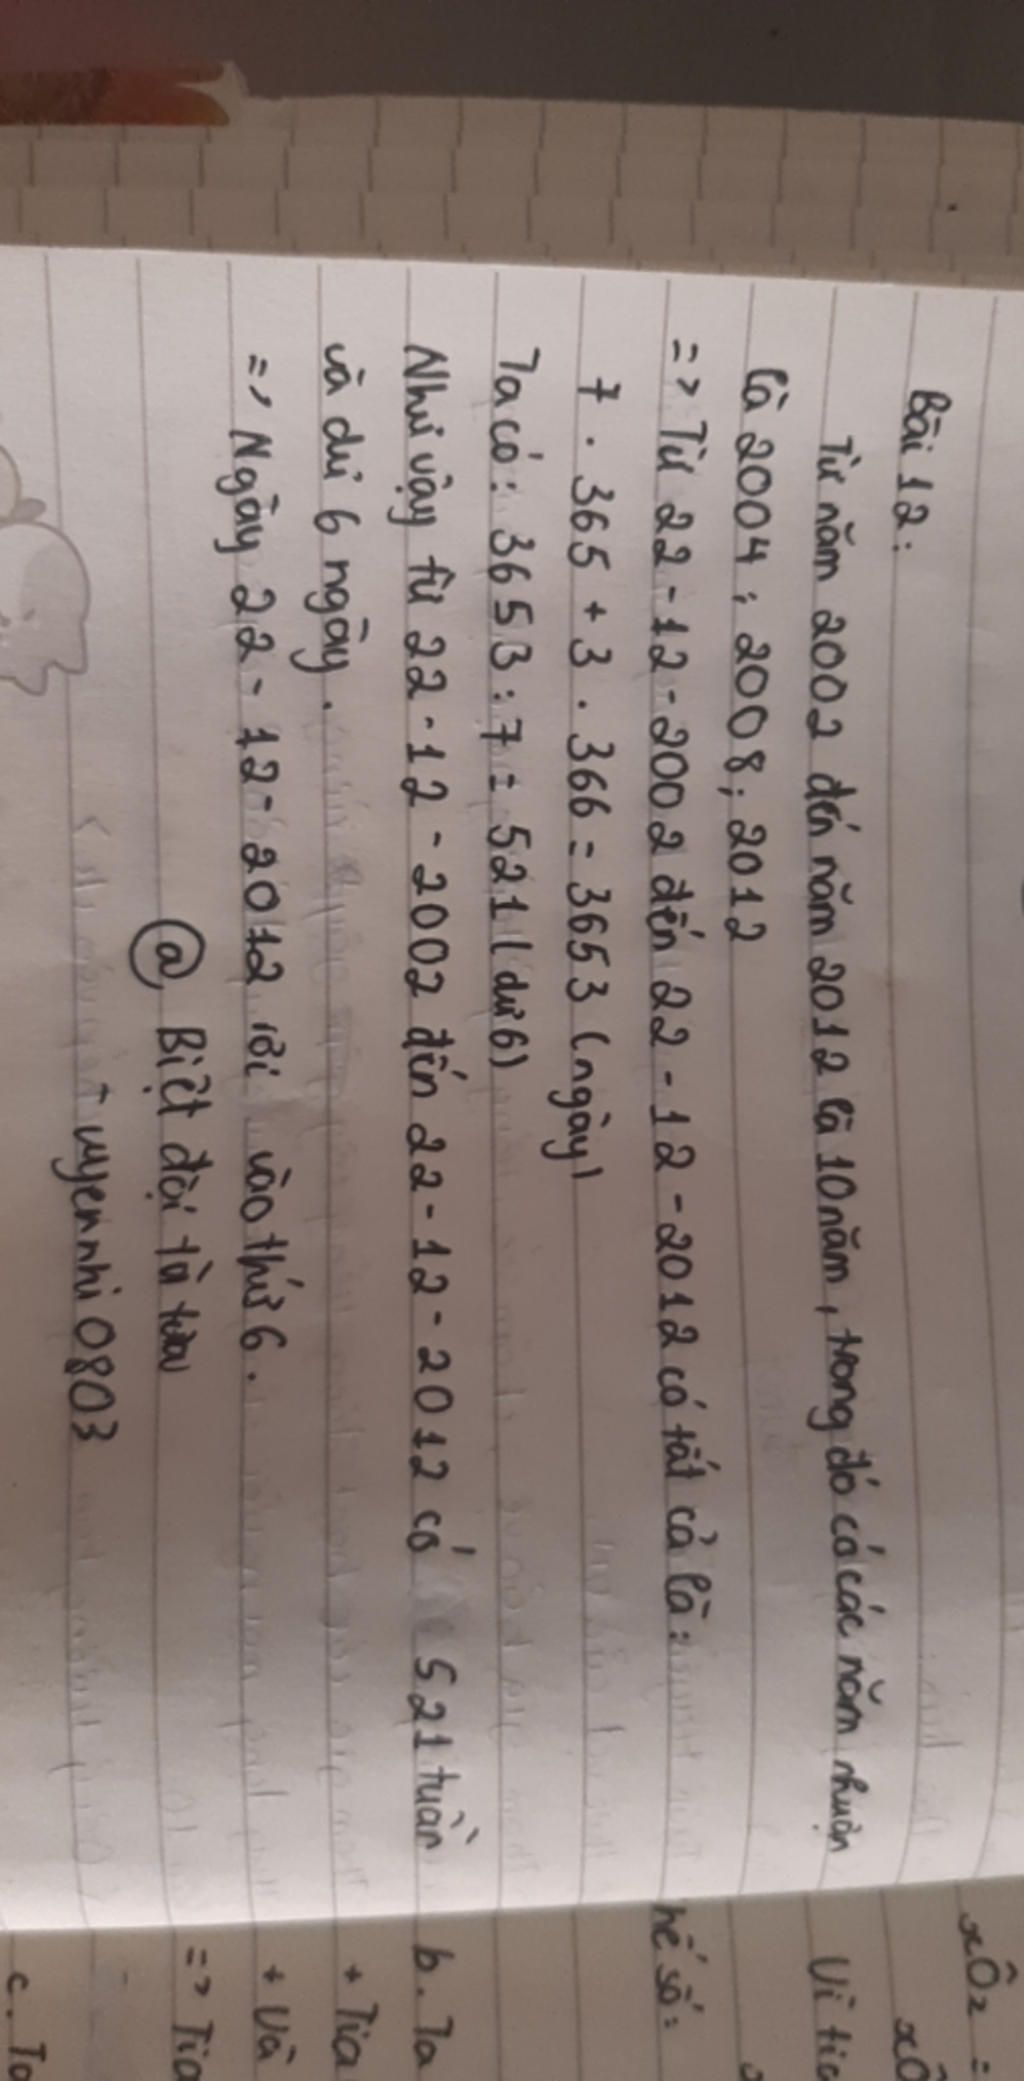 Bài 12:
Từ năm 2002 đến năm 2012 là 10 năm, trong đó có các năm nhuận
là 2004; 2008; 2012
=> Từ 22-12-2002 đến 22-12-2012 có tất cả là:
7 . 365 + 3 . 366 = 3653 (ngày)
Ta có: 3653 : 7 = 521 (dư 6)
Như vậy từ 22-12-2002 đến 22-12-2012 có 521 tuần
và dư 6 ngày.
=> Ngày 22-12-2012 rơi vào thứ 6.
@ Biệt đội tà tưa
uyennhi0803
xÔz =
xÔ
Vì tia
hế số:
b. Ta
+ Tia
+ Và
=> Tia
c. Ta